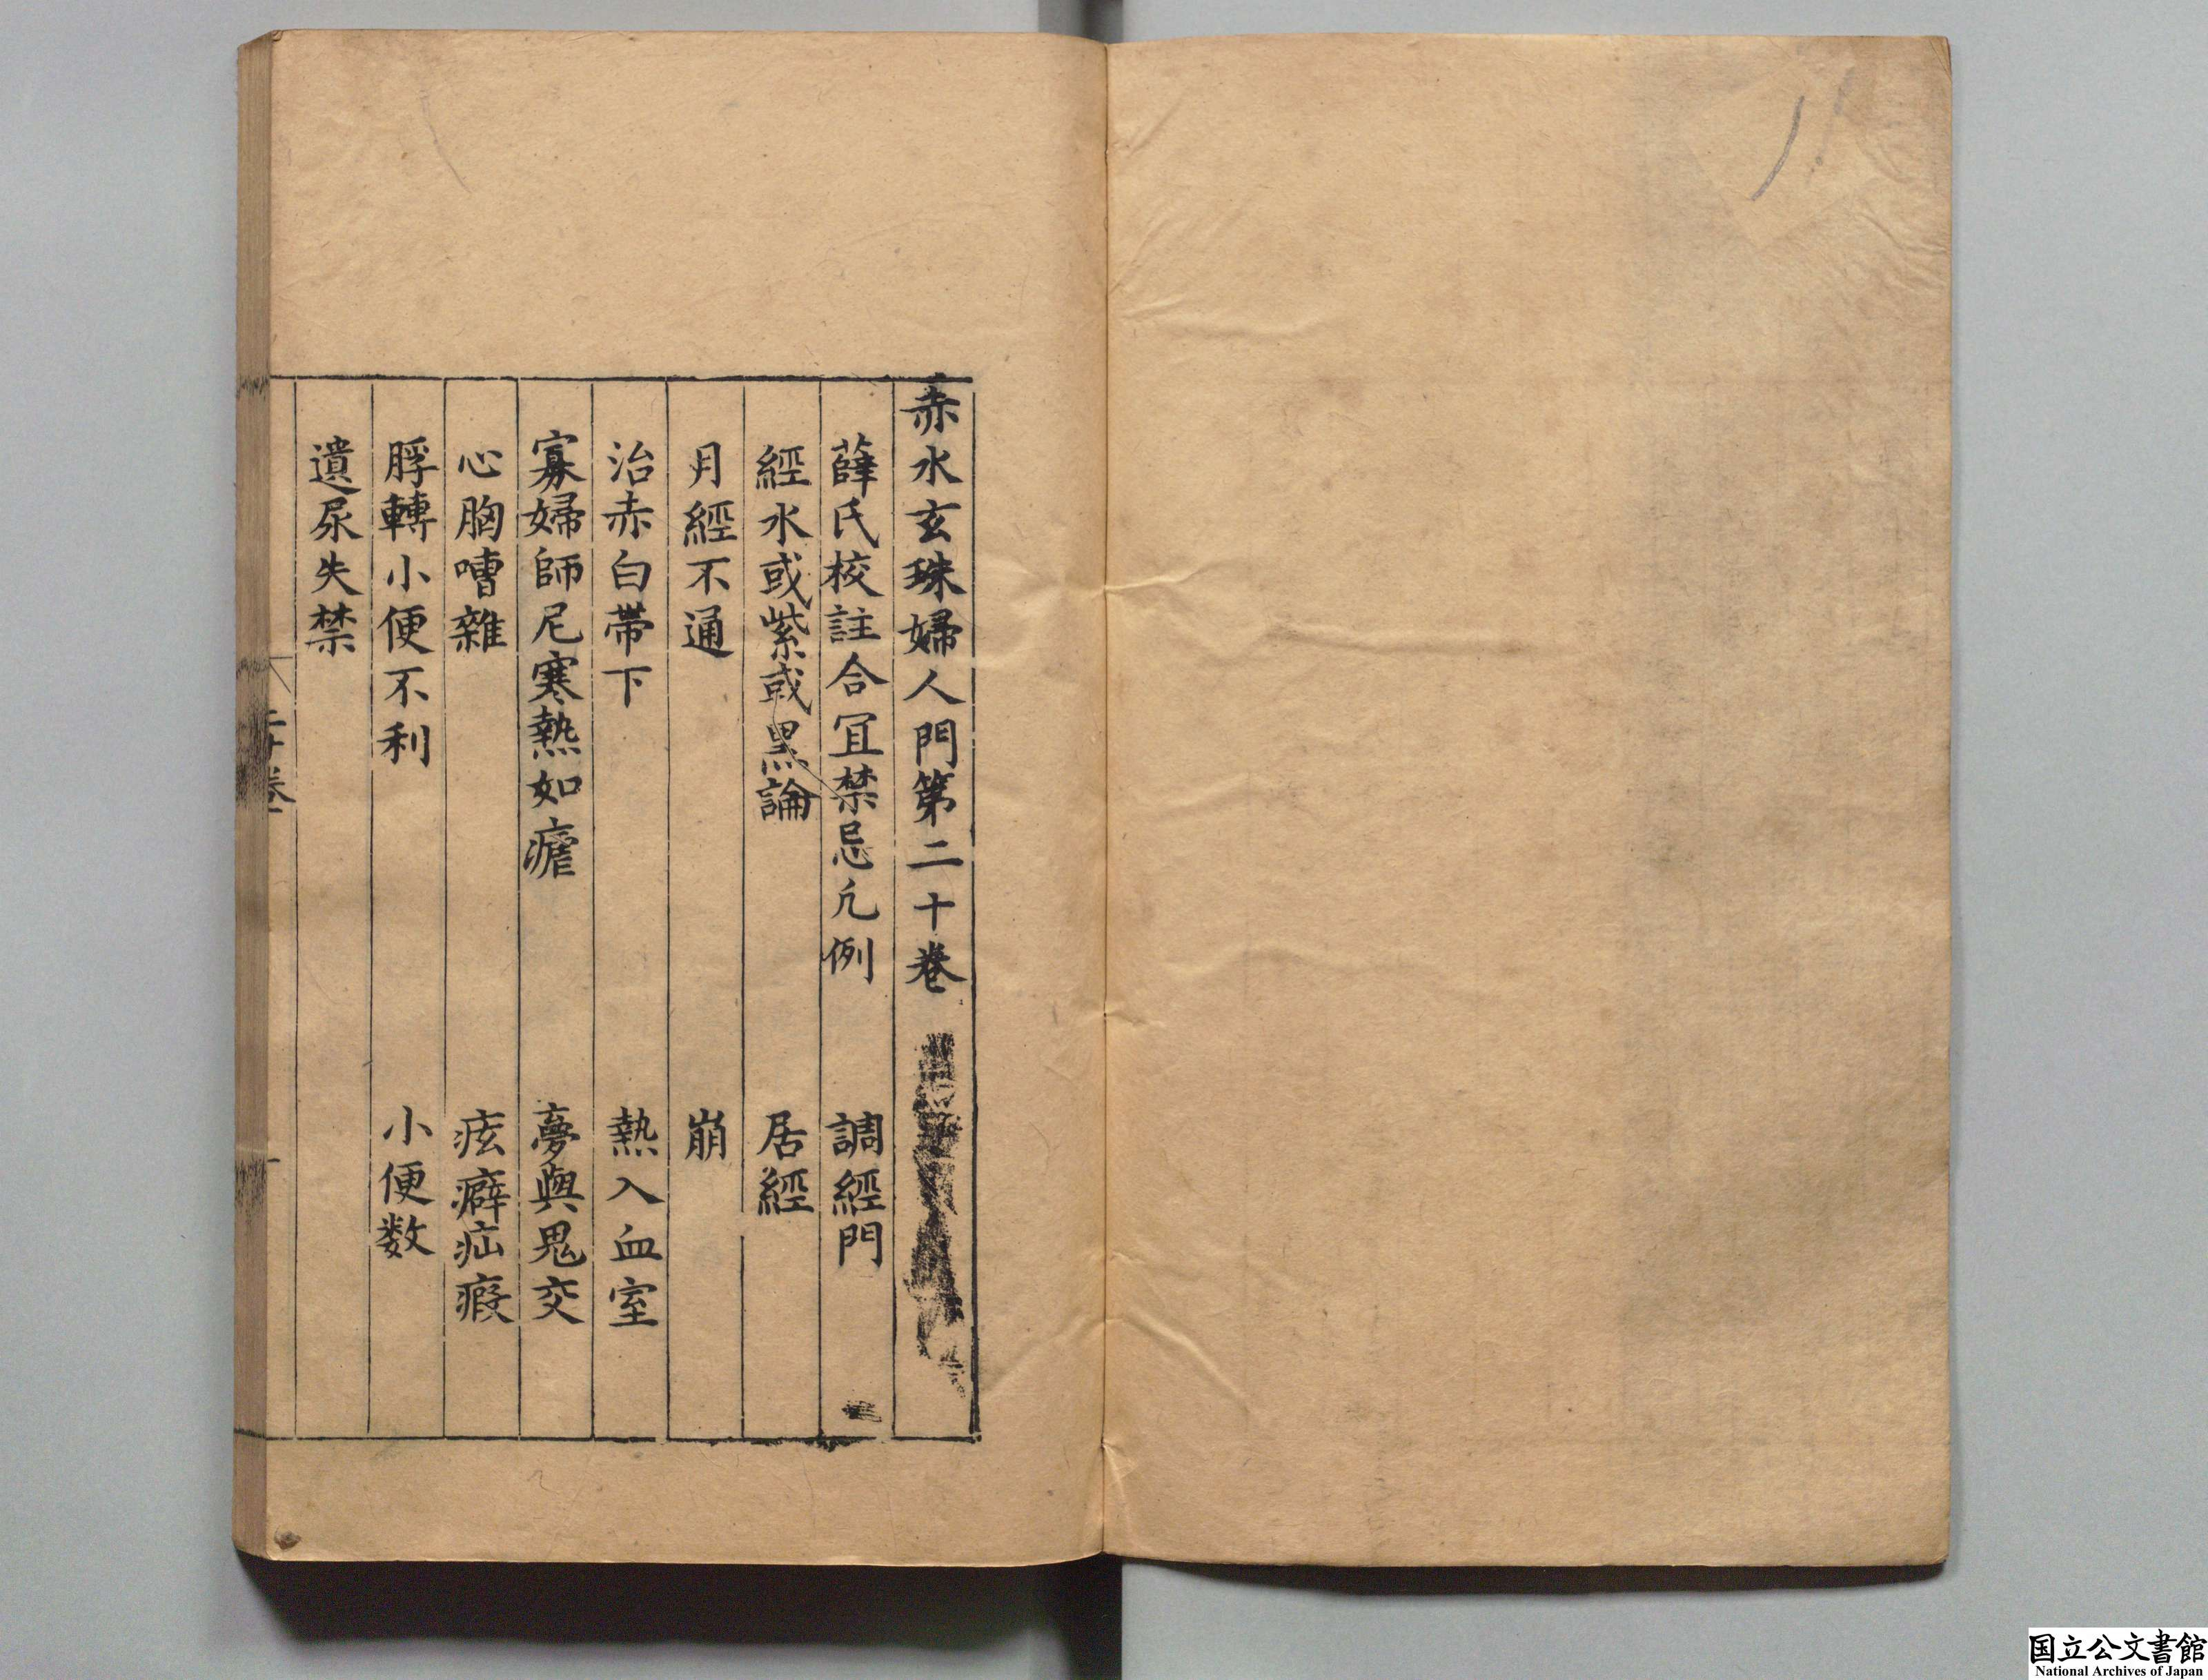 赤水玄珠婦人門第二十卷
薛氏校註合宜禁忌凢例　調經門
經水或紫或黒論　居經
月經不通　崩
治赤白帶下　熱入血室
寡婦師尼寒熱如瘧　夢與鬼交
心胸嘈雜　痃癖疝瘕
脬轉小便不利　小便数
遺尿失禁
二十卷
国立公文書館
National Archives of Japan